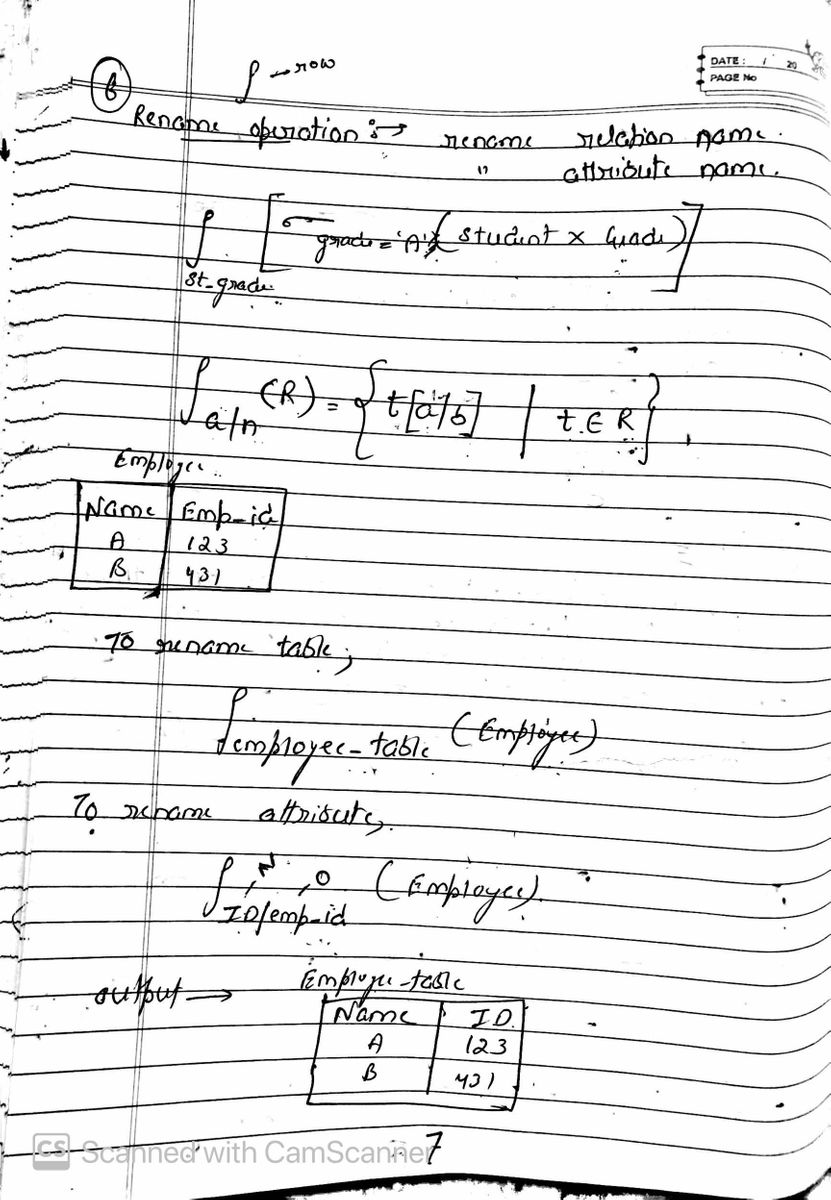 DATE: / 20
PAGE No
6 ρ → row
Rename operation :→ rename relation name.
" attribute name.
ρ st_grade [σ grade = 'A' (student x Grade)]
ρ a/n (R) = { t[a/b] | t ∈ R },
Employee
Name Emp-id
A 123
B 431
To rename table;
ρ employee-table (Employee)
To rename attribute,
ρ ID/emp-id , N , O (Employee).
output → Employee-table
Name ID
A 123
B 431
7
CS Scanned with CamScanner